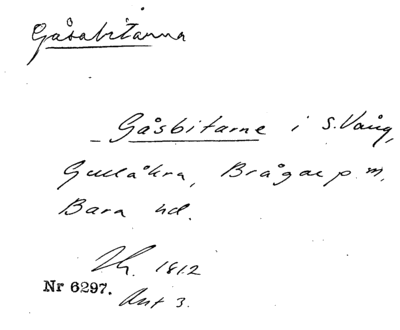 Gåsabitarna
- Gåsbitarne i S. Vång,
Gullåkra, Brågarp m.
Bara hd.
1812
Nr 6297.
Ant 3.